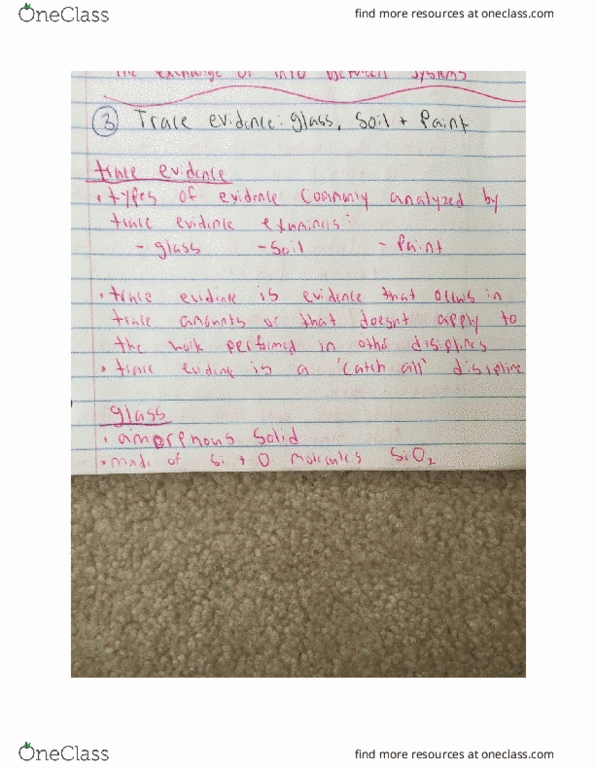 OneClass find more resources at oneclass.com
the exchange of info between systems
③ Trace evidence: glass, Soil + Paint
trace evidence
• types of evidence commonly analyzed by
trace evidence examiners:
- glass - Soil - Paint
• trace evidence is evidence that occurs in
trace amounts or that doesnt apply to
the work performed in other disiplines
• trace evidence is a 'catch all' disipline
glass
• amorphous Solid
• made of Si + O molecules SiO₂
OneClass find more resources at oneclass.com